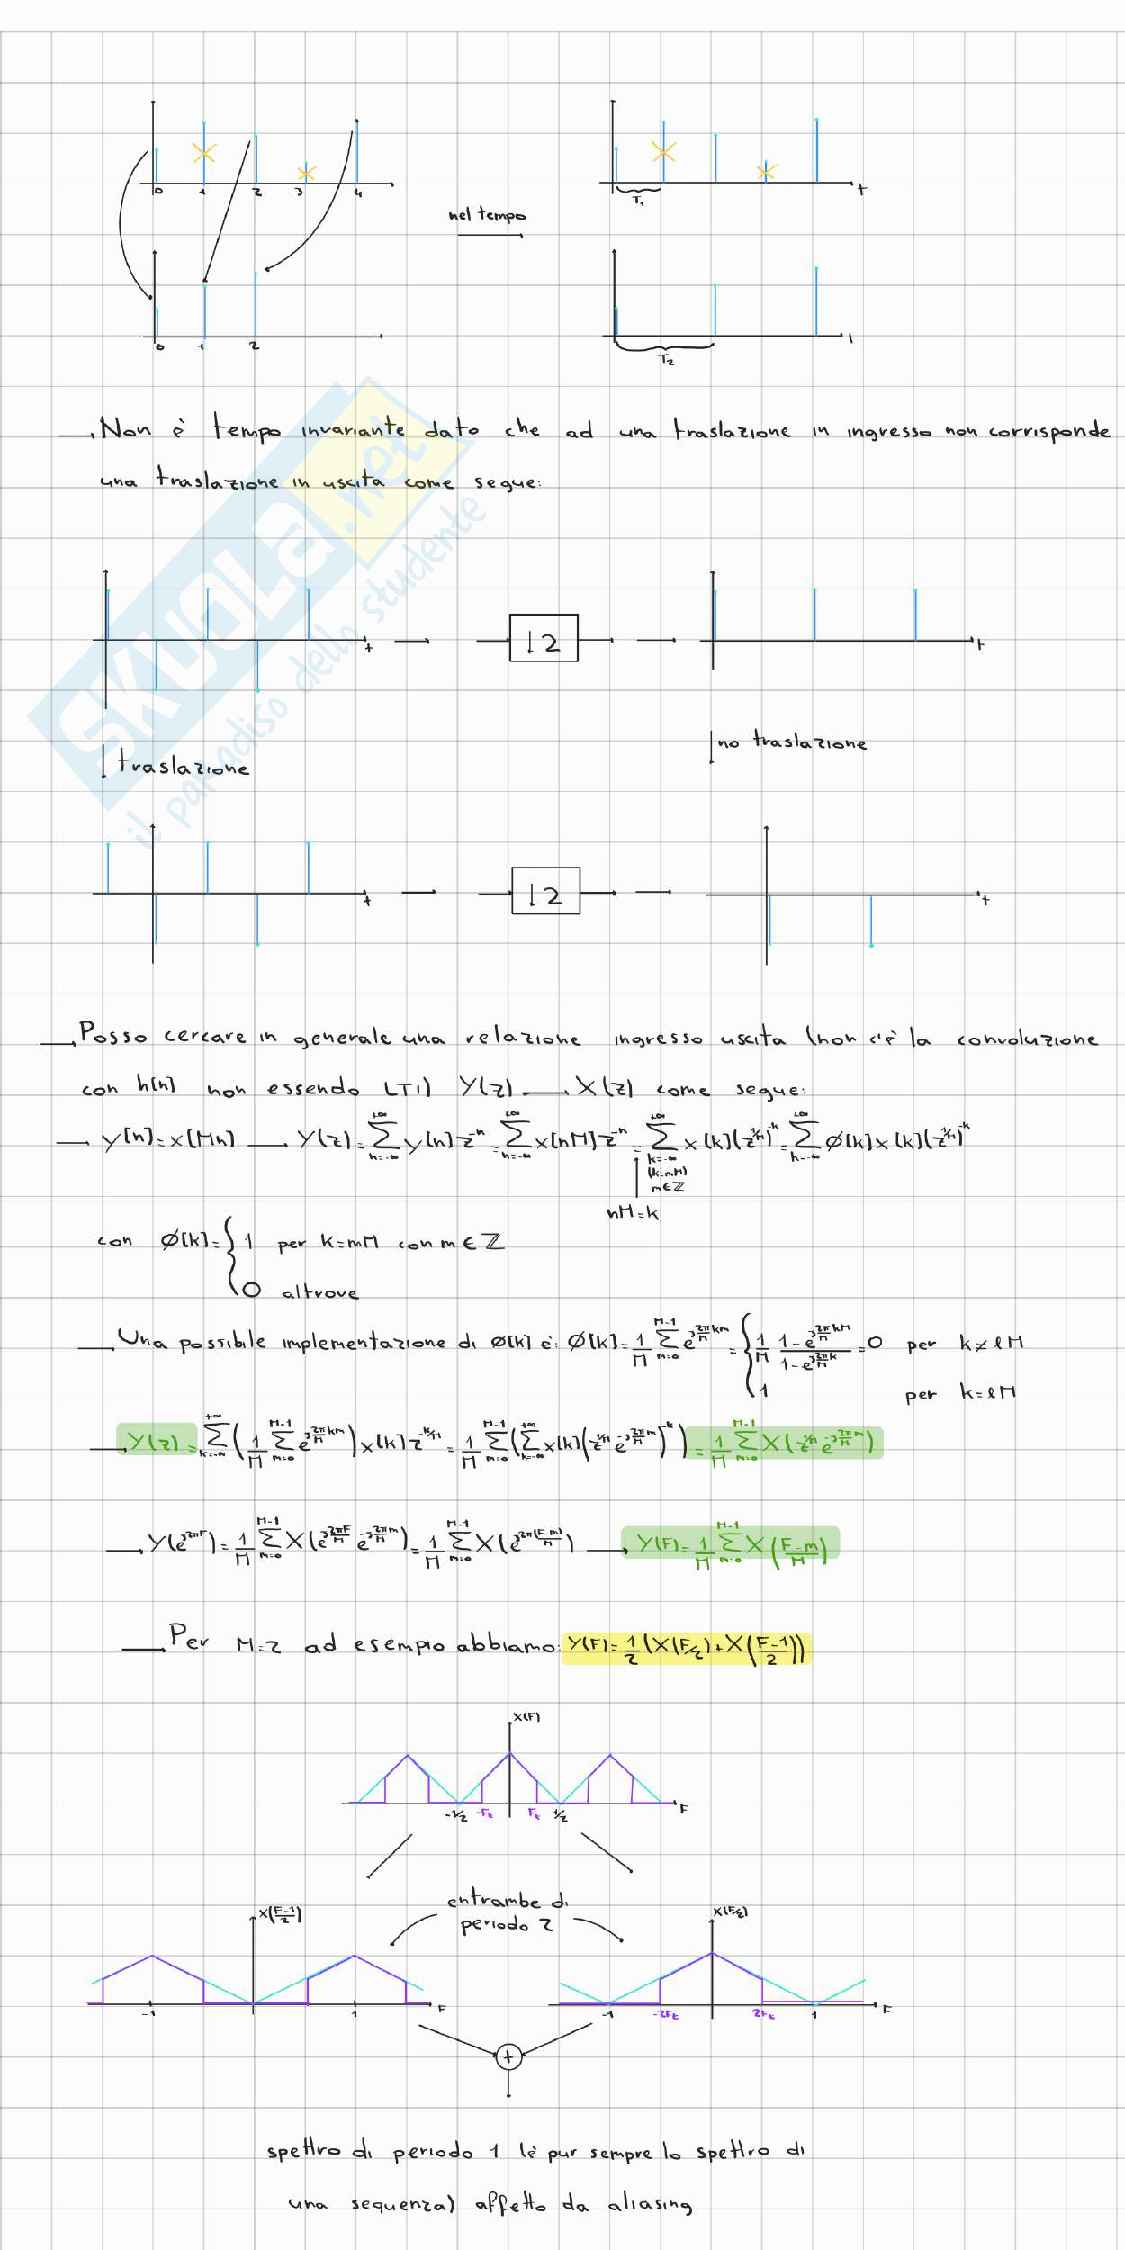 0 1 2 3 4
t
T₁
nel tempo
0 1 2
t
T₂
SKUOLA.net
il paradiso dello studente
Non è tempo invariante dato che ad una traslazione in ingresso non corrisponde
una traslazione in uscita come segue:
t
↓2
t
↓ traslazione
↓ no traslazione
t
↓2
t
→ Posso cercare in generale una relazione ingresso uscita (non c'è la convoluzione
con h[n] non essendo LTI) Y(z) → X(z) come segue:
→ y[n]=x[Mn] → Y(z)=∑_{n=-∞}^{+∞} y[n]z^{-n}=∑_{n=-∞}^{+∞} x[nM]z^{-n}=∑_{k=-∞ (k=mM) m∈ℤ}^{+∞} x[k](z^{1/M})^{-k}=∑_{k=-∞}^{+∞} ø[k]x[k](z^{1/M})^{-k}
nM=k
con ø[k]={1 per k=mM con m∈ℤ
0 altrove
→ Una possibile implementazione di ø[k] è: ø[k]=1/M ∑_{m=0}^{M-1} e^{j2π/M km}={1/M (1-e^{j2π/M kM})/(1-e^{j2π/M k})=0 per k≠lM
1 per k=lM
→ Y(z)=∑_{k=-∞}^{+∞}(1/M ∑_{m=0}^{M-1} e^{j2π/M km})x[k]z^{-k/M}=1/M ∑_{m=0}^{M-1}(∑_{k=-∞}^{+∞} x[k](z^{1/M}e^{-j2π/M m})^{-k})=1/M ∑_{m=0}^{M-1} X(z^{1/M}e^{-j2π/M m})
→ Y(e^{j2πF})=1/M ∑_{m=0}^{M-1} X(e^{j2πF/M}e^{-j2π/M m})=1/M ∑_{m=0}^{M-1} X(e^{j2π(F-m)/M}) → Y(F)=1/M ∑_{m=0}^{M-1} X((F-m)/M)
→ Per M=2 ad esempio abbiamo: Y(F)=1/2(X(F/2)+X((F-1)/2))
X(F)
-1/2 -Ft Ft 1/2 F
entrambe di
periodo 2
X((F-1)/2)
-1 1 F
X(F/2)
-1 -2Ft 2Ft 1 F
+
spettro di periodo 1 (è pur sempre lo spettro di
una sequenza) affetto da aliasing